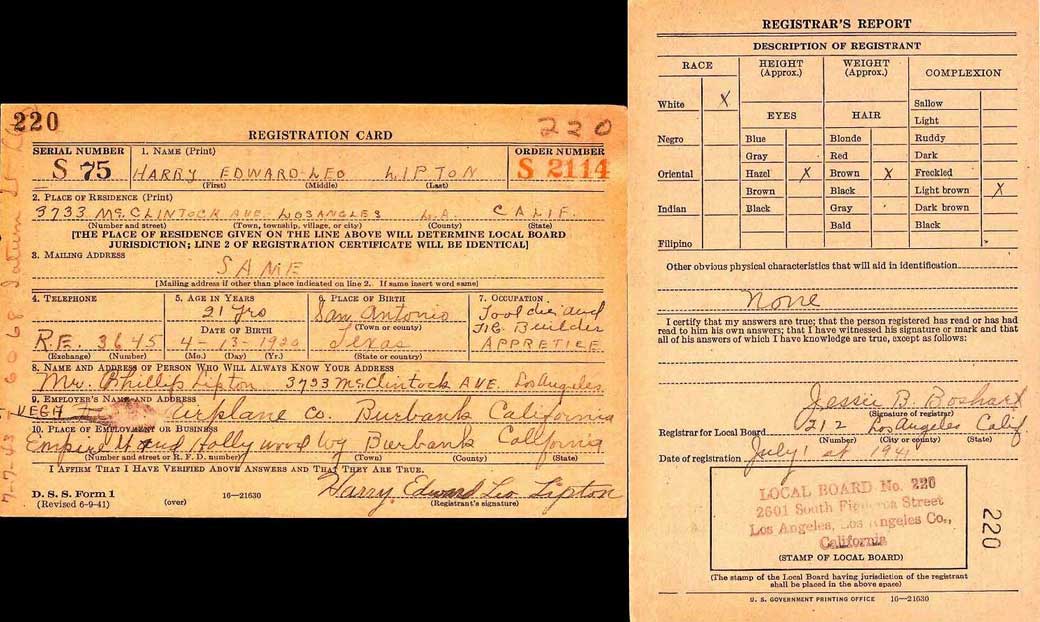 220
220
REGISTRATION CARD
SERIAL NUMBER
S 75
1. NAME (Print)
HARRY EDWARD LEO LIPTON
(First) (Middle) (Last)
ORDER NUMBER
S 2114
2. PLACE OF RESIDENCE (Print)
3733 McCLINTOCK AVE. LOSANGLES L.A. CALIF.
(Number and street) (Town, township, village, or city) (County) (State)
[THE PLACE OF RESIDENCE GIVEN ON THE LINE ABOVE WILL DETERMINE LOCAL BOARD
JURISDICTION; LINE 2 OF REGISTRATION CERTIFICATE WILL BE IDENTICAL]
3. MAILING ADDRESS
SAME
[Mailing address if other than place indicated on line 2. If same insert word same]
4. TELEPHONE
R.E. 3645
(Exchange) (Number)
5. AGE IN YEARS
21 Yrs
DATE OF BIRTH
4-13-1920
(Mo.) (Day) (Yr.)
6. PLACE OF BIRTH
San Antonio
(Town or county)
Texas
(State or country)
7. OCCUPATION
Tool die and
JIG. Builder
APPRETICE
8. NAME AND ADDRESS OF PERSON WHO WILL ALWAYS KNOW YOUR ADDRESS
Mr. Phillip Lipton 3733 McClintock AVE. Los Angeles
9. EMPLOYER'S NAME AND ADDRESS
VEGA airplane Co. Burbank California
10. PLACE OF EMPLOYMENT OR BUSINESS
Empire and Hollywood wy Burbank California
(Number and street or R. F. D. number) (Town) (County) (State)
I AFFIRM THAT I HAVE VERIFIED ABOVE ANSWERS AND THAT THEY ARE TRUE.
Harry Edward Leo Lipton
D. S. S. Form 1
(Revised 6-9-41)
(over)
16—21630
(Registrant's signature)
REGISTRAR'S REPORT
DESCRIPTION OF REGISTRANT
RACE
White X
Negro
Oriental
Indian
Filipino
HEIGHT
(Approx.)
WEIGHT
(Approx.)
EYES
Blue
Gray
Hazel X
Brown
Black
HAIR
Blonde
Red
Brown X
Black
Gray
Bald
COMPLEXION
Sallow
Light
Ruddy
Dark
Freckled
Light brown X
Dark brown
Black
Other obvious physical characteristics that will aid in identification
None
I certify that my answers are true; that the person registered has read or has had
read to him his own answers; that I have witnessed his signature or mark and that
all of his answers of which I have knowledge are true, except as follows:
Jessie B. Boshart
(Signature of registrar)
Registrar for Local Board 212 Los Angeles Calif
(Number) (City or county) (State)
Date of registration July 1 st 1941
LOCAL BOARD No. 220
2601 South Figueroa Street
Los Angeles, Los Angeles Co.,
California
(STAMP OF LOCAL BOARD)
220
(The stamp of the Local Board having jurisdiction of the registrant
shall be placed in the above space)
U. S. GOVERNMENT PRINTING OFFICE 16—21630